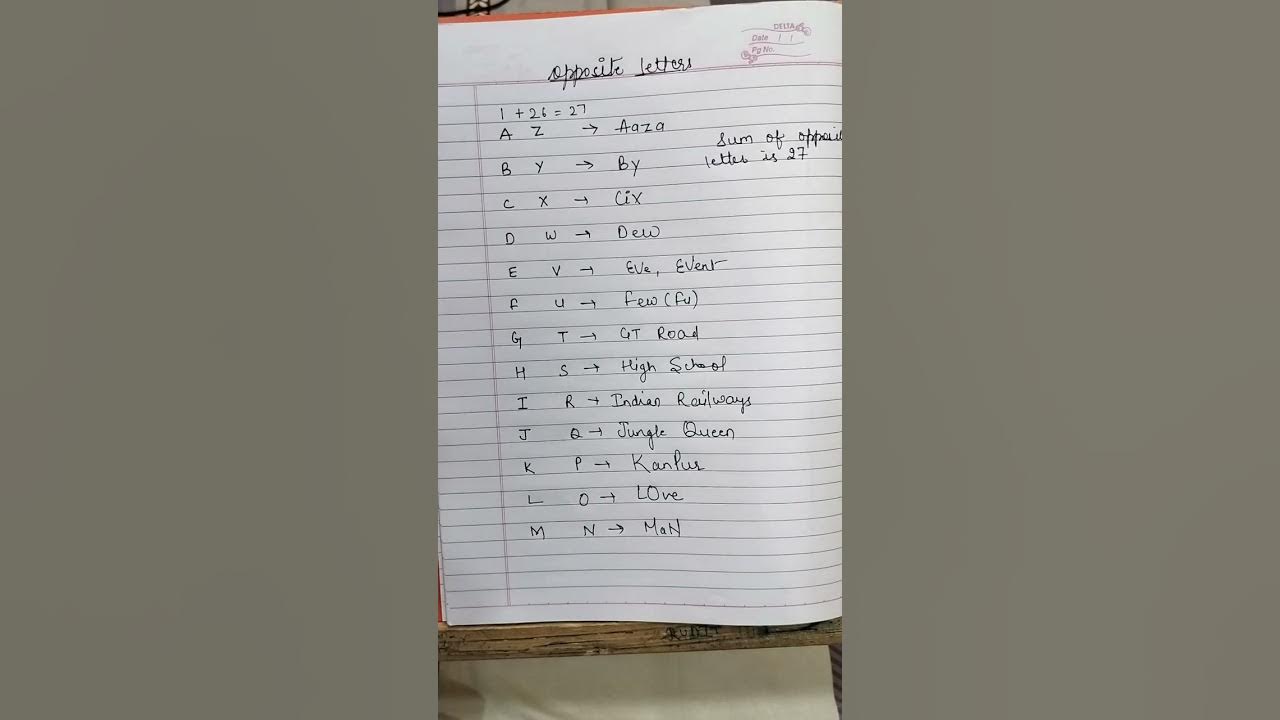 DELTA
Date / /
Pg No.
Opposite Letters
1 + 26 = 27
A Z → Aaza
Sum of opposit
letter is 27
B Y → By
C X → CiX
D W → Dew
E V → EVe, EVent
F U → Few (Fu)
G T → GT Road
H S → High School
I R → Indian Railways
J Q → Jungle Queen
K P → KanPur
L O → LOve
M N → MaN